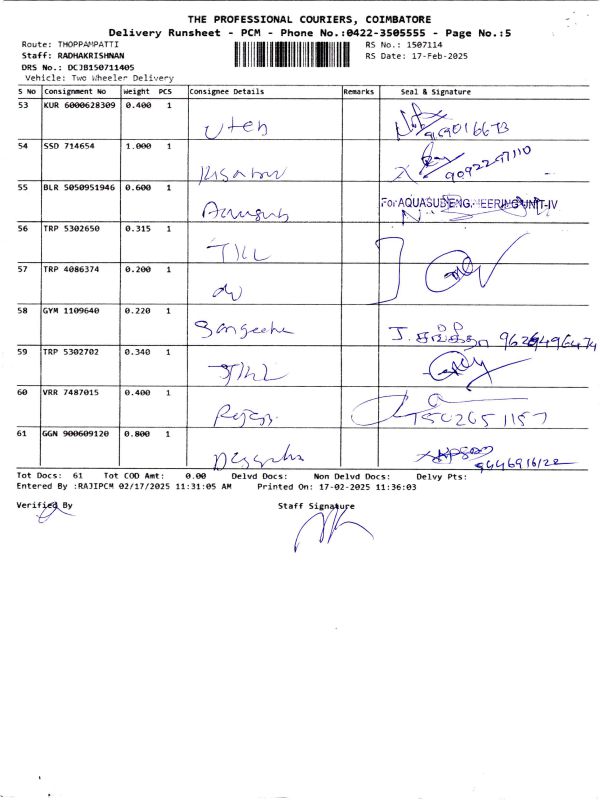 THE PROFESSIONAL COURIERS, COIMBATORE
Delivery Runsheet - PCM - Phone No.:0422-3505555 - Page No.:5
Route: THOPPAMPATTI RS No.: 1507114
Staff: RADHAKRISHNAN RS Date: 17-Feb-2025
DRS No.: DCJB150711405
Vehicle: Two Wheeler Delivery
S No Consignment No Weight PCS Consignee Details Remarks Seal & Signature
53 KUR 6000628309 0.400 1
54 SSD 714654 1.000 1
9092247110
55 BLR 5050951946 0.600 1
For AQUASUB ENGINEERING UNIT-IV
56 TRP 5302650 0.315 1
57 TRP 4086374 0.200 1
58 GYM 1109640 0.220 1
Sangeetha J. சங்கீதா
59 TRP 5302702 0.340 1
60 VRR 7487015 0.400 1
61 GGN 900609120 0.800 1
Tot Docs: 61 Tot COD Amt: 0.00 Delvd Docs: Non Delvd Docs: Delvy Pts:
Entered By :RAJIPCM 02/17/2025 11:31:05 AM Printed On: 17-02-2025 11:36:03
Verified By Staff Signature